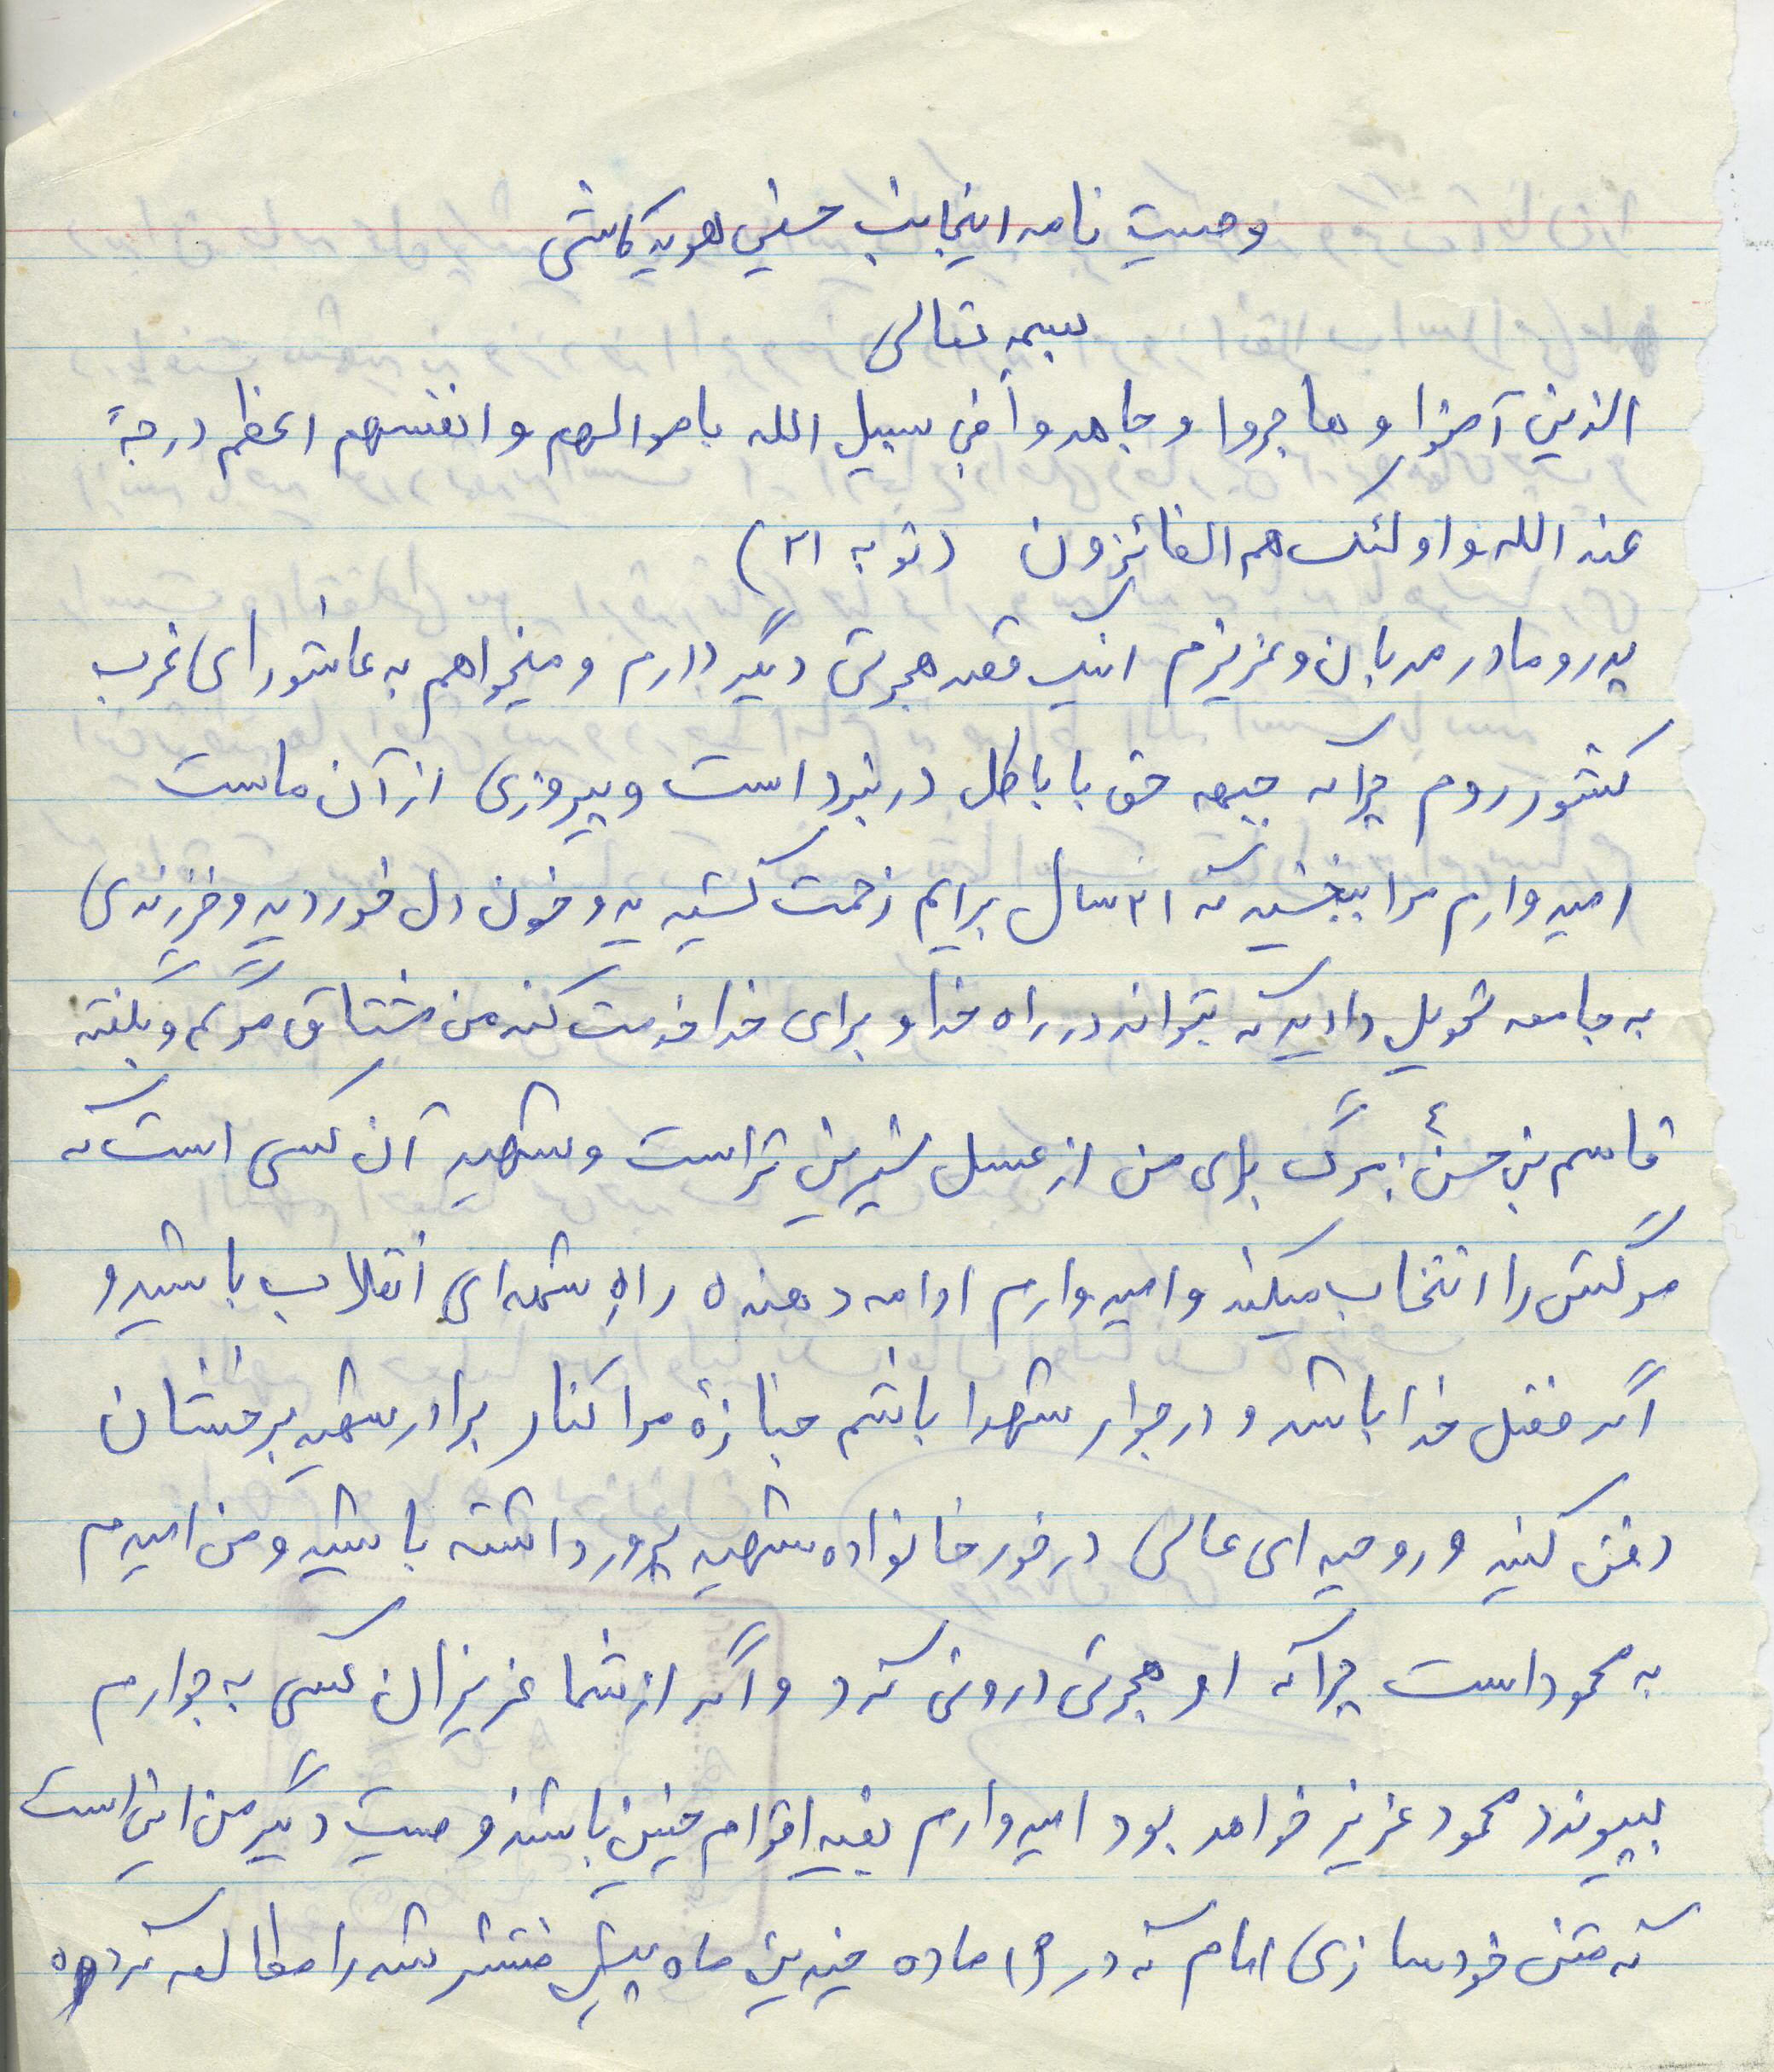 وصیت نامه اینجانب حسین هویه کاشی
بسمه تعالی
الذین آمنوا و هاجروا و جاهدوا فی سبیل الله باموالهم و انفسهم اعظم درجةً
عند الله و اولئک هم الفائزون (توبه ۲۱)
پدر و مادر مهربان و عزیزم اینک قصد هجرتی دیگر دارم و میخواهم به عاشورای غرب
کشور روم چرا که جبهه حق با باطل در نبرد است و پیروزی از آن ماست
امیدوارم مرا ببخشید که ۲۱ سال برایم زحمت کشیدید و خون دل خوردید و فرزندی
به جامعه تحویل دادید که بتواند در راه خدا و برای خدا خدمت کند من مشتاق مرگم و بگفته
قاسم بن حسن ع : مرگ برای من از عسل شیرین تر است و شهید آن کسی است که
مرگش را انتخاب میکند و امیدوارم ادامه دهنده راه شهدای انقلاب باشید و
اگر فضل خدا باشد و در جوار شهدا باشم جنازۀ مرا کنار برادر شهید
دفن کنید و روحیه ای عالی در خور خانواده شهید پرور داشته باشید و من امیدم
به محمود است چرا که او هجرتی درونی کرد و اگر از شما عزیزان کسی به جوارم
بپیوندد محمود عزیز خواهد بود امیدوارم بقیه اقوام چنین باشند وصیت دیگر من این است
که متن خودسازی امام که در ماده چندین ماه پیش منتشر شد را مطالعه کرده